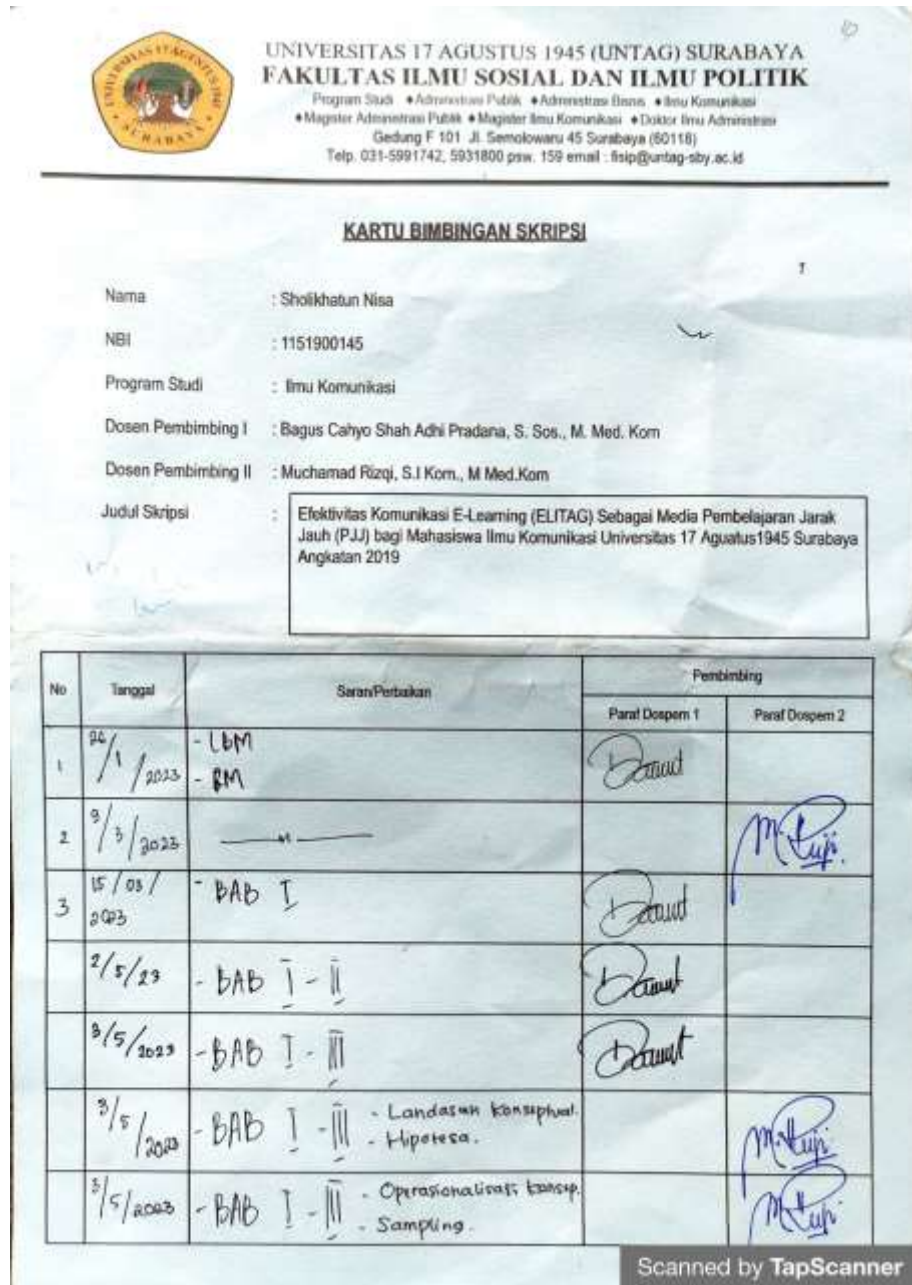 UNIVERSITAS 17 AGUSTUS 1945
SURABAYA
UNIVERSITAS 17 AGUSTUS 1945 (UNTAG) SURABAYA
FAKULTAS ILMU SOSIAL DAN ILMU POLITIK
Program Studi ♦Administrasi Publik ♦Administrasi Bisnis ♦Ilmu Komunikasi
♦Magister Administrasi Publik ♦Magister Ilmu Komunikasi ♦Doktor Ilmu Administrasi
Gedung F 101 Jl. Semolowaru 45 Surabaya (60118)
Telp. 031-5991742, 5931800 psw. 159 email : fisip@untag-sby.ac.id
KARTU BIMBINGAN SKRIPSI
Nama : Sholikhatun Nisa
NBI : 1151900145
Program Studi : Ilmu Komunikasi
Dosen Pembimbing I : Bagus Cahyo Shah Adhi Pradana, S. Sos., M. Med. Kom
Dosen Pembimbing II : Muchamad Rizqi, S.I Kom., M Med.Kom
Judul Skripsi : Efektivitas Komunikasi E-Learning (ELITAG) Sebagai Media Pembelajaran Jarak
Jauh (PJJ) bagi Mahasiswa Ilmu Komunikasi Universitas 17 Aguatus1945 Surabaya
Angkatan 2019
No Tanggal Saran/Perbaikan Pembimbing
Paraf Dospem 1 Paraf Dospem 2
1 26/1/2023 - LBM
- RM
2 9/3/2023
3 15/03/2023 - BAB I
2/5/23 - BAB I - II
3/5/2023 - BAB I - III
3/5/2023 - BAB I - III - Landasan konseptual.
- Hipotesa.
3/5/2023 - BAB I - III - Operasionalisasi konsep.
- Sampling.
Scanned by TapScanner